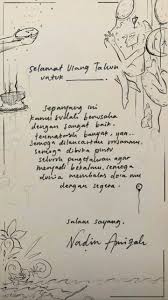 Selamat Ulang Tahun
untuk
Sepanjang ini
kamu sudah berusaha
dengan sangat baik.
terimakasih banyak, ya..
Semoga dilancarkan urusanmu,
semoga dibita
seluruh pengetahuan agar
menjadi bekalmu, semoga
dunia membalas doramu
dengan segera.
Salam sayang,
Nadin Amizah